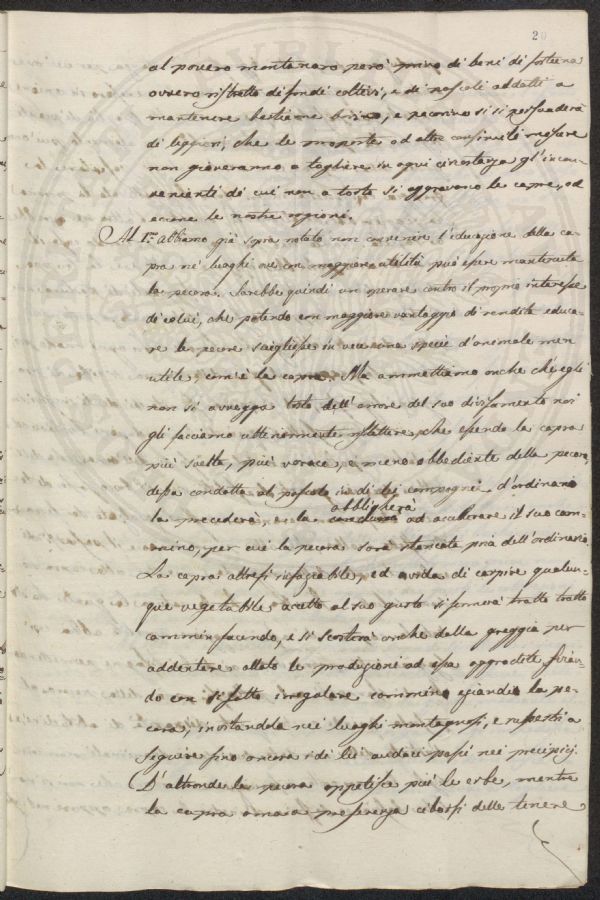 20
al povero montanaro però privo di beni di fortuna
ovvero ristretto di fondi coltivi, e di pascoli addatti a
mantenere bestiame bovino, e pecorino si si persuaderà
di leggieri, che le proposte od altre consimili misure
non gioveranno a togliere in ogni circostanza gl'incon-
venienti de' cui non a torto si aggravano le capre, od
eccone le nostre opinioni.
Al 1.mo abbiamo già sopra notato non convenire l'educazione della ca-
pra ne' luoghi ove con maggiore utilità può essere mantenuta
la pecora. Sarebbe quindi un operare contro il proprio interesse
di colui, che potendo con maggiore vantaggio di rendita educa-
re le pecore scegliesse in vece una specie d'animale men
utile, com'è la capra. Ma ammettiamo anche ch'egli
non si avvegga tosto dell'errore del suo divisamento noi
gli facciamo ulteriormente riflettere, che essendo la capra
più svelta, più vorace, e meno obbediente della pecora,
dessa condotta al pascolo in di lei compagnia d'ordinario
obbligherà
la precederà, e la ad accellerare il suo cam-
mino, per cui la pecora sarà stancata pria dell'ordinario
La capra altresì infaticabile, ed avida di carpire qualun-
que vegetabile accetto al suo gusto si fermerà tratto tratto
cammin facendo, e si scosterà anche dalla greggia per
addentare allato le produzioni ad essa aggradite
do con sì fatto irregolare cammino eziandio la pe-
cora, incitandola nei luoghi montagnosi, e rupestri a
seguire fino ancora i di lei audaci passi nei precipizj.
D'altronde la pecora appetisce più le erbe, mentre
la capra ama a preferenza cibarsi delle tenere